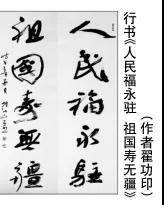 人民福永駐
祖國壽無疆
行书《人民福永驻 祖国寿无疆》
（作者翟功印）